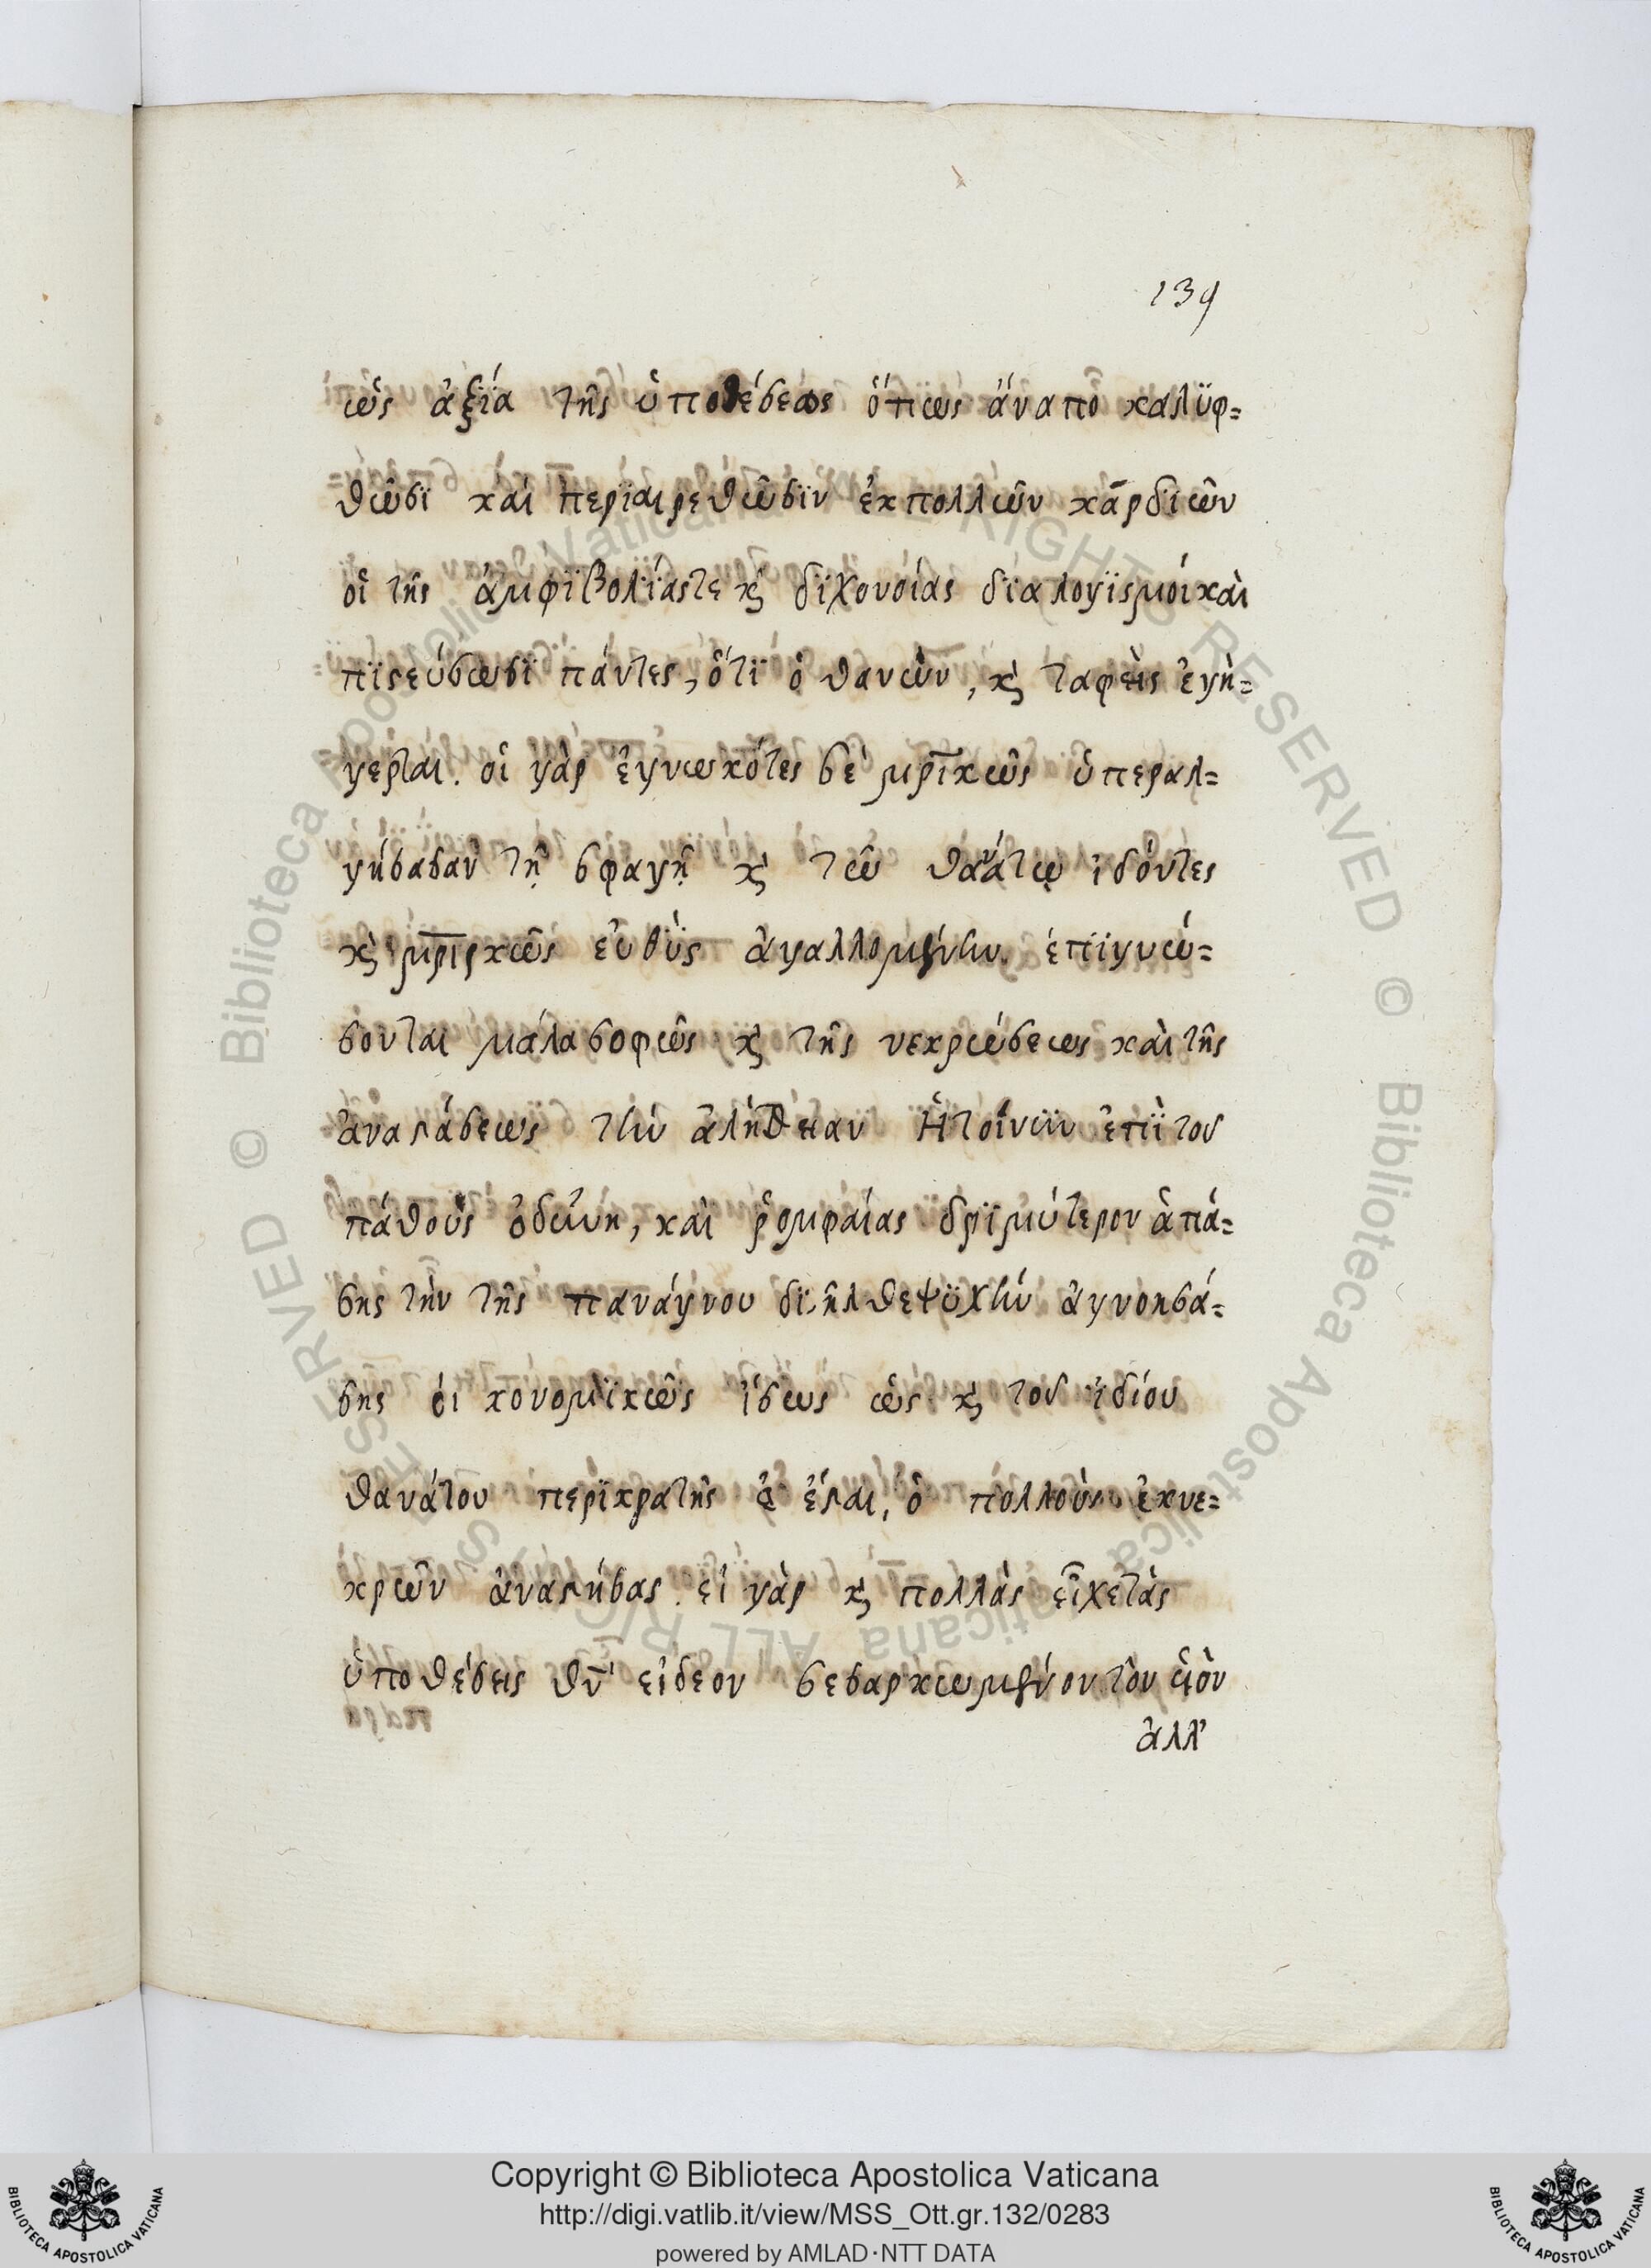 139
ὡς ἀξία τῆς ὑποθέσεως ὅπως ἀναπο καλϋφ=
θῶσϊ καὶ περϊαιρεθῶσϊν ἐκπολλῶν καρδιῶν
οἱ τῆς ἀμφϊβολΐαςτε κ̀ δϊχονοίας δϊαλογϊσμοί καὶ
πϊςεύσωσϊ πάντες, ὅτϊ ὁ θανὼν, κ̀ ταφεὶς ἐγὴ=
γερται. οἱ γὰρ ἐγνωκότες σε μρϊκῶς ὑπεραλ=
γήσασαν τῇ σφαγῇ κ̀ τῶ θανάτῳ ἰδόντες
κ̀ μρικῶς εὐθὺς ἀγαλλομένην. ἐπϊγνώ=
σονται μάλα σοφῶς κ̀ τῆς νεκρώσεως καὶ τῆς
ἀναςάσεως τὴν ἀλήθειαν Ἡτοίνϋν ἐπϊ τοῦ
πάθοὺς ὀδύνη, καὶ ῥομφαίας δρϊμύτερον ἁπά=
σης τὴν τῆς πανάγνου δϊῆλθεψϋχὴν ἀγνοησά=
σης οἰ κονομϊκῶς ἴσως ὡς κ̀ τοῦ ἰδίου
θανάτου περϊκρατὴς ἔςαι, ὁ πολλοὺς ἐκνε=
κρῶν ἀναςήσας. εἰ γὰρ κ̀ πολλὰς εἶχετὰς
ὑποθέσεις θν̄ εἰδεον σεσαρκωμένον τὸν ὑιὸν
ἀλλ'
Copyright © Biblioteca Apostolica Vaticana
http://digi.vatlib.it/view/MSS_Ott.gr.132/0283
powered by AMLAD·NTT DATA